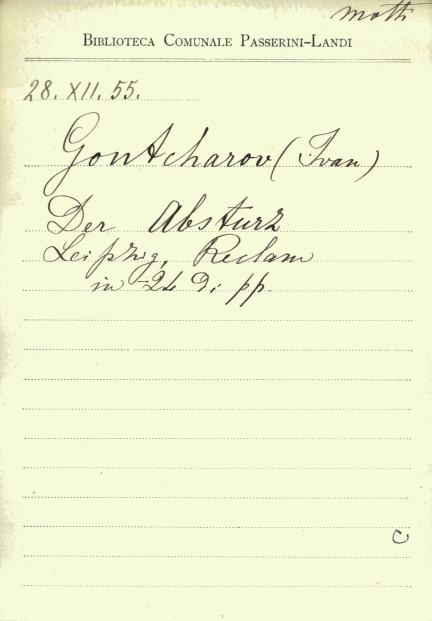 Motti
BIBLIOTECA COMUNALE PASSERINI-LANDI
28. XII. 55.
Gontcharov (Ivan)
Der Absturz
Leipzig, Reclam
in 24 di pp.
C